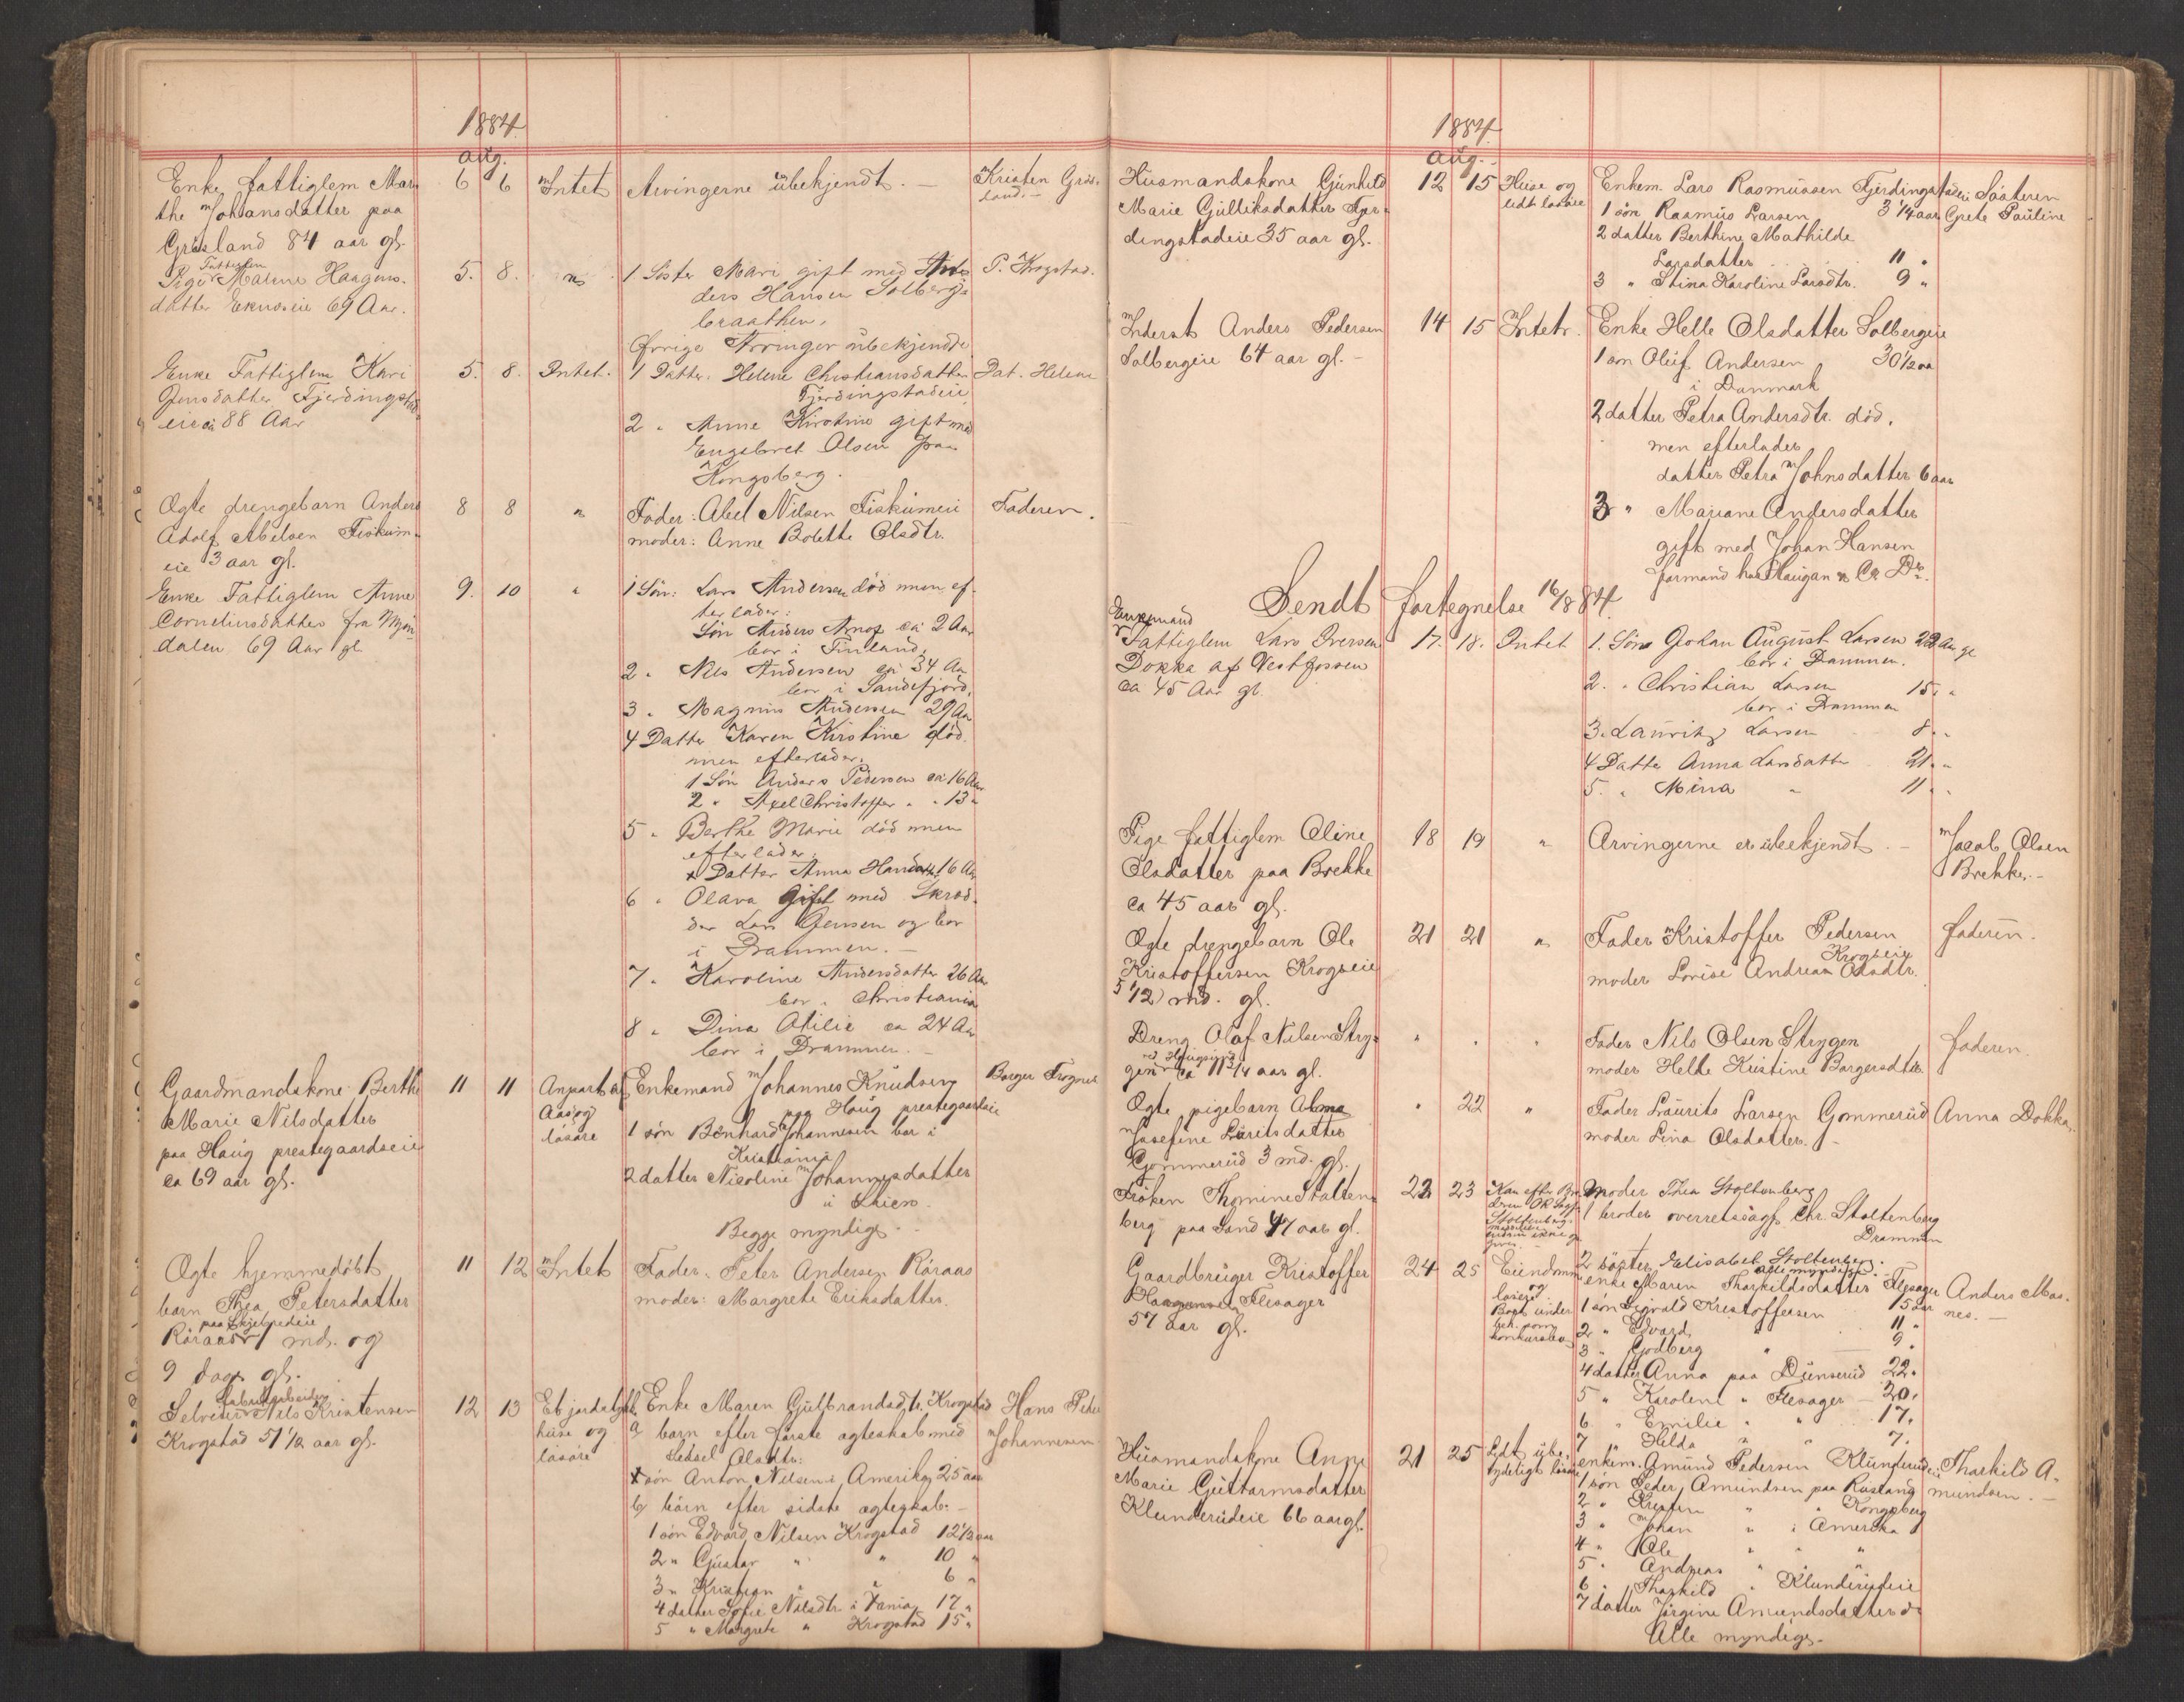 1884.
Aug.
Enke fattiglem Mar- 6 6 Intet Arvingerne übekjendt. — Kristen Grös-
the Johansdatter paa land. —
Grösland 84 aar gl.
Fattiglem
Pige Malene Haagens- 5. 8. " 1 Söster Mari gift med An-
datter Eknæseie 69 Aar. ders Hansen Solberg- P. Krogstad.
braathen.
Övrige Arvinger übekjendte
Enke Fattiglem Kari 5. 8. Intet. 1 Datter. Helene Christiansdatter Dat. Helene
Jensdatter Fjerdingstad- Fjerdingstadeie
eie ca 88 Aar 2 " Anne Kirstine gift med
Engebret Olsen paa
Kongsberg.
Ægte drengebarn Anders 8 8 " Fader: Abel Nilsen Fiskumeie Faderen.
Adolf Abelsen Fiskum- moder: Anne Bolette Olsdtr.
eie 3 aar gl.
Enke Fattiglem Anne 9. 10 " 1 Sön: Lars Andersen död men ef-
Corneliusdatter fra Mjön- terlader:
dalen 69 Aar gl Sön Anders ca 2 Aar
bor i Finland.
2 " Nils Andersen ca 34 Aar
bor i Sandefjord.
3 " Magnus Andersen 29 Aar
4 Datter Karen Kirstine död
men efterlader.
1 Sön Anders Pedersen ca 16 Aar
2 " Axel Christoffer " " 13 "
5 " Berthe Marie död men
efterlader.
x Datter Anna Hansdatter 16 Aar
6 " Olava Gift med Skræd-
der Lars Jensen og bor
i Drammen. —
7 " Karoline Andersdatter 26 Aar
bor i Christiania
8 " Dina Otilie ca 24 Aar
bor i Drammen. —
Gaardmandskone Berthe 11 11 Anpart af Enkemand Johannes Knudsen Borger Frogner
Marie Nilsdatter Aas og paa Haug prestegaardseie
paa Haug prestegaardseie lösöre 1 sön Bernhard Johannesen bor i
ca 69 aar gl. Kristiania
2 datter Nicoline Johannesdatter
i Skien.
Begge myndige. —
Ægte hjemmedöbt 11 12 Intet Fader: Peter Andersen Röraas
barn Thea Petersdatter moder: Margrete Eriksdatter.
paa Skjelbredeie
Röraas 1 md. og
9 dage gl.
Fabrikarbeider
Selveier Nils Kristensen 12 13 Et jordstykke Enke Maren Gulbrandsdtr. Krogstad Hans Peder
Krogstad 51 1/2 aar gl. huse og a) barn efter förste ægteskab med Johannesen
lösöre Sidsel Olsdtr:
x sön Anton Nilsen i Amerika 25 aar
b) börn efter sidste ægteskab. —
1 sön Edvard Nilsen Krogstad 12 1/2 aar
2 " Gustav " " 10 "
3 " Kristian " " 6 "
4 datter Sofie Nilsdtr. i Xania 17 "
5 " Margrete " Krogstad 15 "
1884.
Aug.
Husmandskone Gunhild 12 15 Huse og Enkem. Lars Rasmussen Fjerdingstadeie Søsteren
Marie Gulliksdatter Fjer- lidt lösöre 1 sön Rasmus Larsen 3 1/4 aar Grete Pauline
dingstadeie 35 aar gl. 2 datter Berthine Mathilde
Larsdatter . . . 11 "
3 " Stina Karoline Larsdtr. 9 "
Inderst Anders Pedersen 14 15 Intet. Enke Helle Olsdatter Solbergeie
Solbergeie 64 aar gl. — 1 sön Oluf Andersen 30 1/2 aar
i Danmark
2 datter Petra Andersdtr. död,
men efterlader
datter Petra Johnsdatter 6 aar
3 " Mariane Andersdatter
gift med Johan Hansen
formand hos Haugan & Co Dr.
Sendt fortegnelse 16/8 84.
Enkemand
Fattiglem Lars Iversen 17. 18. Intet 1. Sön Johan August Larsen 23 Aar gl
Dokka af Vestfossen bor i Drammen.
ca 45 Aar gl. 2. " Christian Larsen 15. "
bor i Drammen
3. Lauritz Larsen 8. "
4 Datter Anna Larsdatter 21. "
5. " Mina " 11. "
Pige fattiglem Oline 18 19 " Arvingerne er übekjendt. — Jacob Olsen
Olsdatter paa Brekke Brekke. —
ca 45 aar gl.
Ægte drengebarn Ole 21 21 " Fader Kristoffer Pedersen faderen.
Kristoffersen Krogseie Krogseie
5 1/2 md. gl. moder Lovise Andrea Olsdtr.
Dreng Olaf Nilsen Stry- " " " Fader Nils Olsen Strygen faderen.
gen ca 11 3/4 aar gl. moder Helle Kristine Borgersdtr.
Ægte pigebarn Alma " 22 " Fader Laurits Larsen Gommerud Anna Dokka.
Josefine Lauritsdatter moder Lina Olsdatter. —
Gommerud 3 md. gl.
Fröken Thomine Stolten- 22 23 Kan efter Bro- Moder Thea Stoltenberg
berg paa Sand 47 aar gl. deren OR Sagf. 1 broder overretssagf. Chr. Stoltenberg
Stoltenbergs Drammen
2 söster Elisabet Stoltenberg.
alle myndige. —
Gaardbruger Kristoffer 24 25 Eiendomme enke Maren Tharkildsdatter Flesager Anders Moe-
Haagensen Flesager og 1 sön Sigvald Kristoffersen 15 aar nes. —
57 aar gl. lösöre 2 " Edvard " 11 "
Boet under 3 " Godberg " 9 "
beh. som 4 datter Anna paa Dunserud 22 "
konkursbo 5 " Karoline " Flesager 20 "
6 " Emilie " " 17 "
7 " Helda " " 7 "
Husmandskone Anne 21 25 Lidt übe- enkem. Amund Pedersen Klunderudeie Tharkild A-
Marie Guttormsdatter tydeligt lösöre 1 sön Peder Amundsen paa Rusland mundsen. —
Klunderudeie 66 aar gl. 2 " Kristen " " Kongsberg
3 " Johan " i Amerika
4 " Ole " " "
5 " Andreas " " "
6 " Tharkild " Klunderudeie
7 datter Jörgine Amundsdatter do
Alle myndige. —